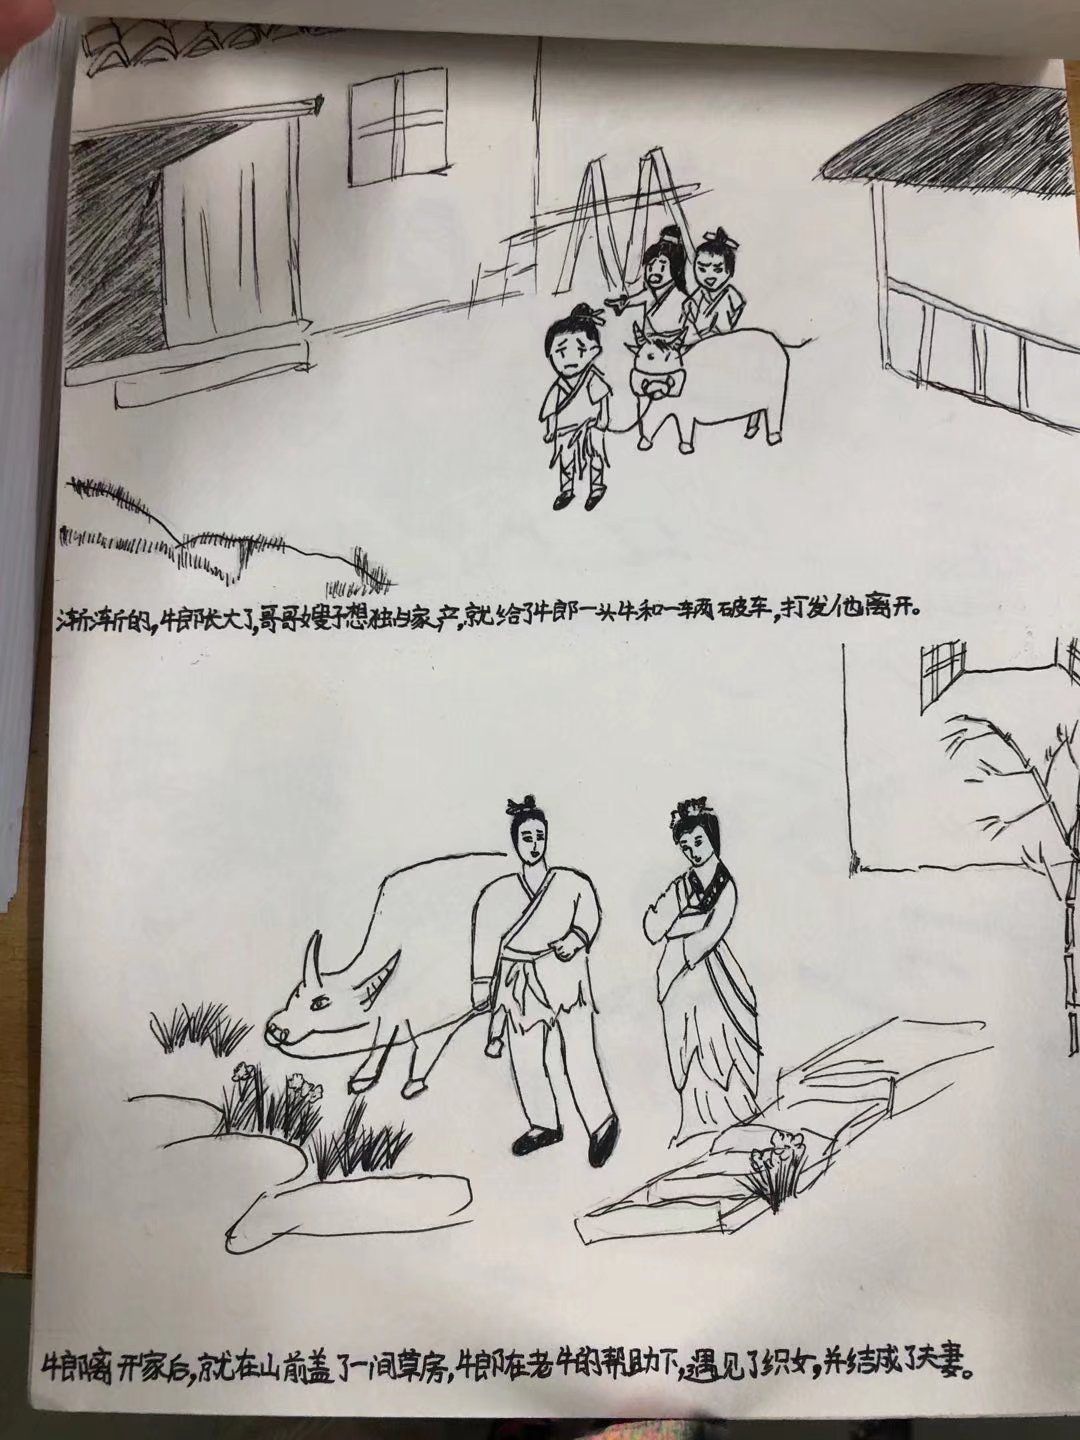 渐渐的,牛郎长大了,哥哥嫂子想独占家产,就给了牛郎一头牛和一辆破车,打发他离开。
牛郎离开家后,就在山前盖了一间草房,牛郎在老牛的帮助下,遇见了织女,并结成了夫妻。